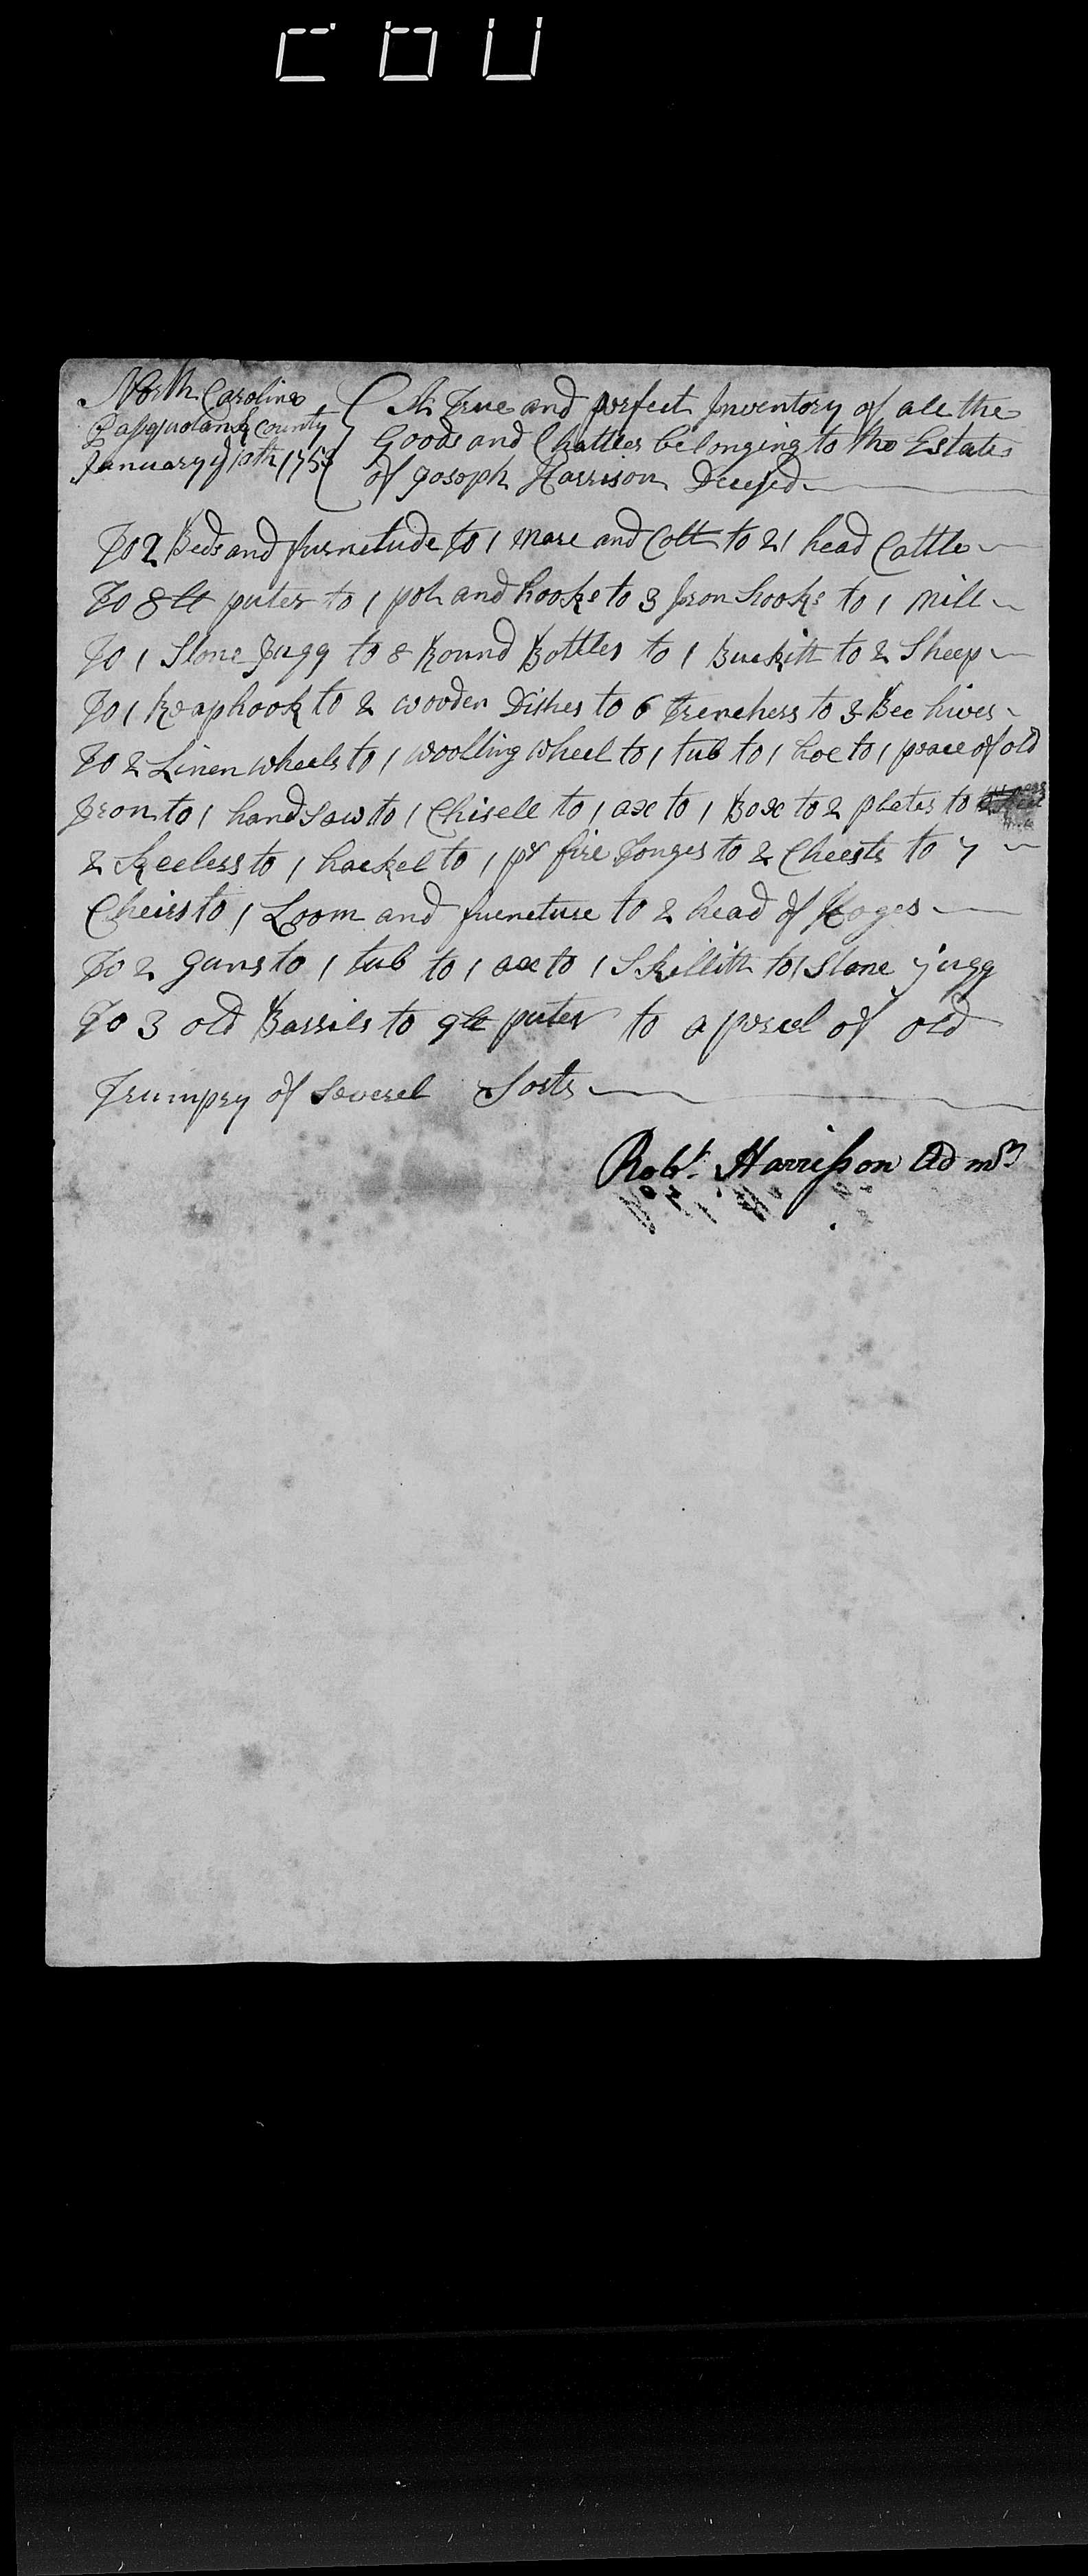 North Carolina
Pasquotank County
January ye 10th 175
A True and perfect Inventory of all the
Goods and Chattles belonging to the Estate
of Joseph Harrison Deceſed
To 2 Beds and furnetude to 1 mare and Colt to 21 head Cattle
To 8 lt puter to 1 pot and hooks to 3 Jron hooks to 1 mill
To 1 Stone Jugg to 8 Round Bottles to 1 Buckitt to 2 Sheep
To 1 Reaphook to 2 wooden Dishes to 6 Trenchers to 3 Bee hives
To 2 Linen wheels to 1 woolling wheel to 1 tub to 1 hoe to 1 peace of old
Jron to 1 hand Saw to 1 Chisell to 1 ax to 1 Box to 2 plates to
2 Keelers to 1 hackel to 1 pr fire Tonges to 2 Cheests to 7
Cheirs to 1 Loom and furneture to 2 head of Hoges
To 2 guns to 1 tub to 1 ax to 1 Skillitt to 1 Stone jugg
To 3 old Barrils to 9 lt puter to a parcel of old
Trumpry of Severel Sorts
Robt. Harriſson Admr